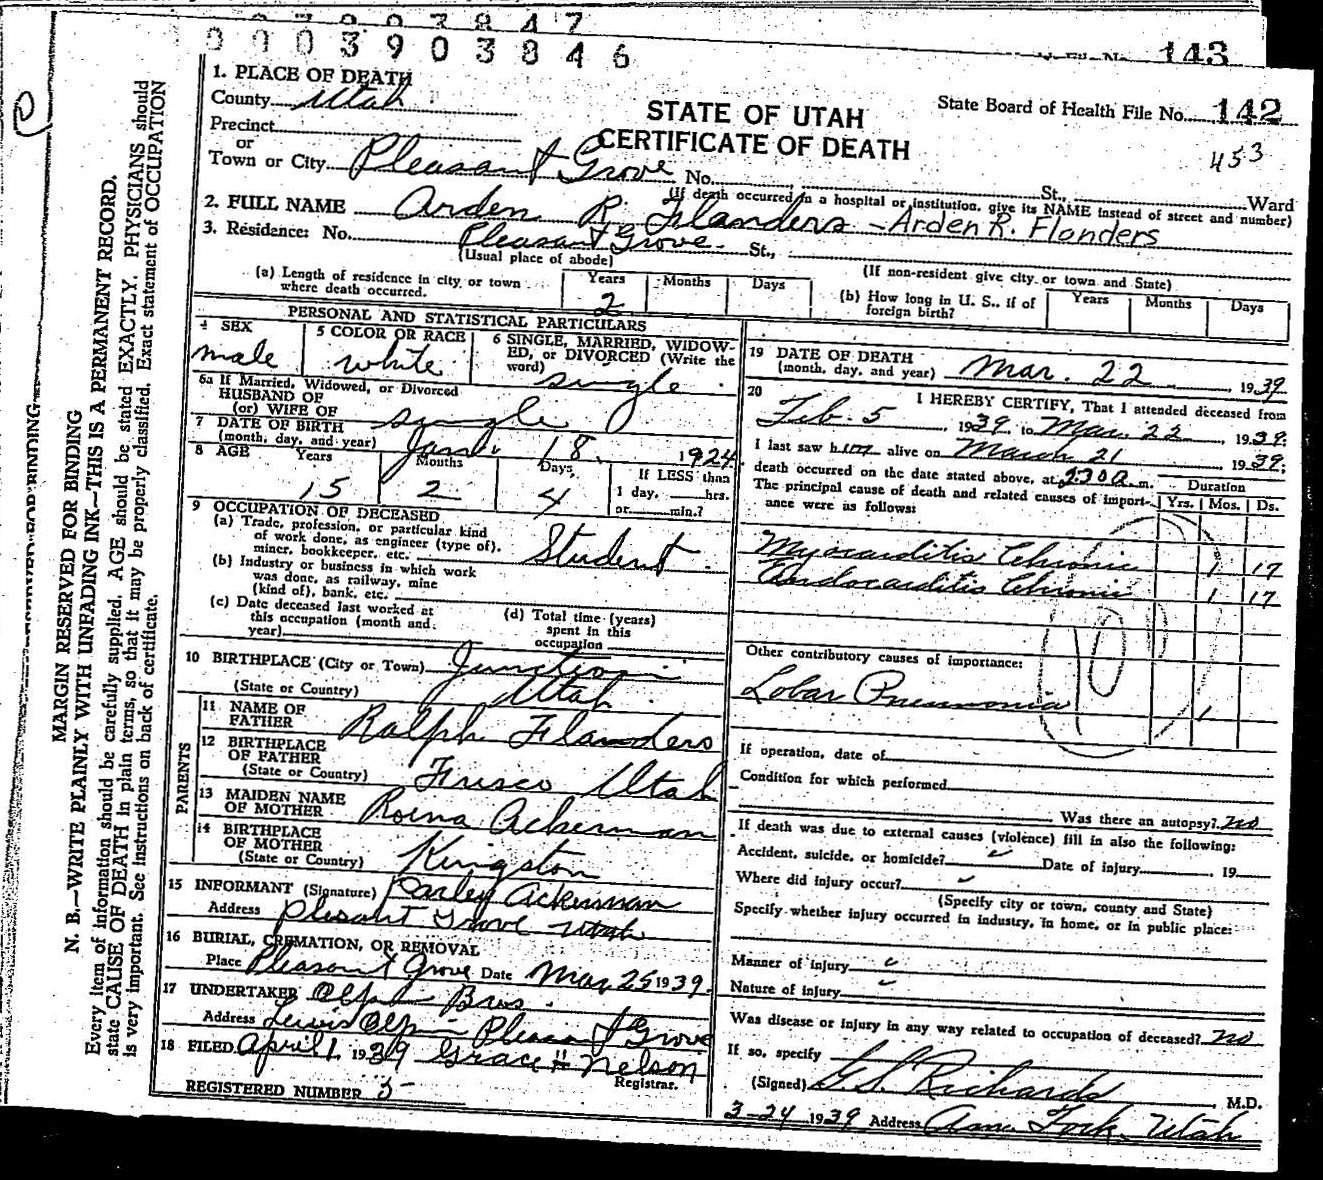 0003903846
143
1. PLACE OF DEATH
County Utah
Precinct
or
Town or City Pleasant Grove No. St., Ward
STATE OF UTAH
CERTIFICATE OF DEATH
State Board of Health File No. 142
453
(If death occurred in a hospital or institution, give its NAME instead of street and number)
2. FULL NAME Arden R. Flanders - Arden R. Flanders
3. Residence: No. Pleasant Grove St.,
(Usual place of abode)
(If non-resident give city or town and State)
(a) Length of residence in city or town where death occurred. Years 2 Months Days
(b) How long in U. S., if of foreign birth? Years Months Days
PERSONAL AND STATISTICAL PARTICULARS
4 SEX male
5 COLOR OR RACE white
6 SINGLE, MARRIED, WIDOWED, or DIVORCED (Write the word) single
6a If Married, Widowed, or Divorced
HUSBAND OF
(or) WIFE OF single
7 DATE OF BIRTH
(month, day, and year) Jan. 18. 1924
8 AGE Years 15 Months 2 Days 4 If LESS than 1 day, hrs. or min.?
9 OCCUPATION OF DECEASED
(a) Trade, profession, or particular kind of work done, as engineer (type of), miner, bookkeeper, etc. Student
(b) Industry or business in which work was done, as railway, mine (kind of), bank, etc.
(c) Date deceased last worked at this occupation (month and year)
(d) Total time (years) spent in this occupation
10 BIRTHPLACE (City or Town) Junction
(State or Country) Utah
PARENTS
11 NAME OF FATHER Ralph Flanders
12 BIRTHPLACE OF FATHER
(State or Country) Frisco Utah
13 MAIDEN NAME OF MOTHER Roena Ackerman
14 BIRTHPLACE OF MOTHER
(State or Country) Kingston
15 INFORMANT (Signature) Parley Ackerman
Address Plesant Grove Utah
16 BURIAL, CREMATION, OR REMOVAL
Place Pleasant Grove Date Mar 25 1939.
17 UNDERTAKER Olpin Bros.
Address Lewis Olpin Pleasant Grove
18 FILED April 1 1939 Grace H Nelson
Registrar.
REGISTERED NUMBER 5
19 DATE OF DEATH
(month, day, and year) Mar. 22 1939
20 I HEREBY CERTIFY, That I attended deceased from
Feb. 5, 1939, to Mar. 22, 1939.
I last saw him alive on March 21 1939;
death occurred on the date stated above, at 2:30 a m.
The principal cause of death and related causes of importance were as follows:
Duration
Yrs. Mos. Ds.
Myocarditis Chronic 1 17
Endocarditis Chronic 1 17
10
Other contributory causes of importance:
Lobar Pneumonia
If operation, date of
Condition for which performed
Was there an autopsy? no
If death was due to external causes (violence) fill in also the following:
Accident, suicide, or homicide? Date of injury 19
Where did injury occur?
(Specify city or town, county and State)
Specify whether injury occurred in industry, in home, or in public place:
Manner of injury
Nature of injury
Was disease or injury in any way related to occupation of deceased? no
If so, specify
(Signed) G.S. Richards, M.D.
3-24 1939 Address Am. Fork. Utah
MARGIN RESERVED FOR BINDING
N. B.—WRITE PLAINLY WITH UNFADING INK—THIS IS A PERMANENT RECORD.
Every item of information should be carefully supplied. AGE should be stated EXACTLY. PHYSICIANS should
state CAUSE OF DEATH in plain terms, so that it may be properly classified. Exact statement of OCCUPATION
is very important. See instructions on back of certificate.